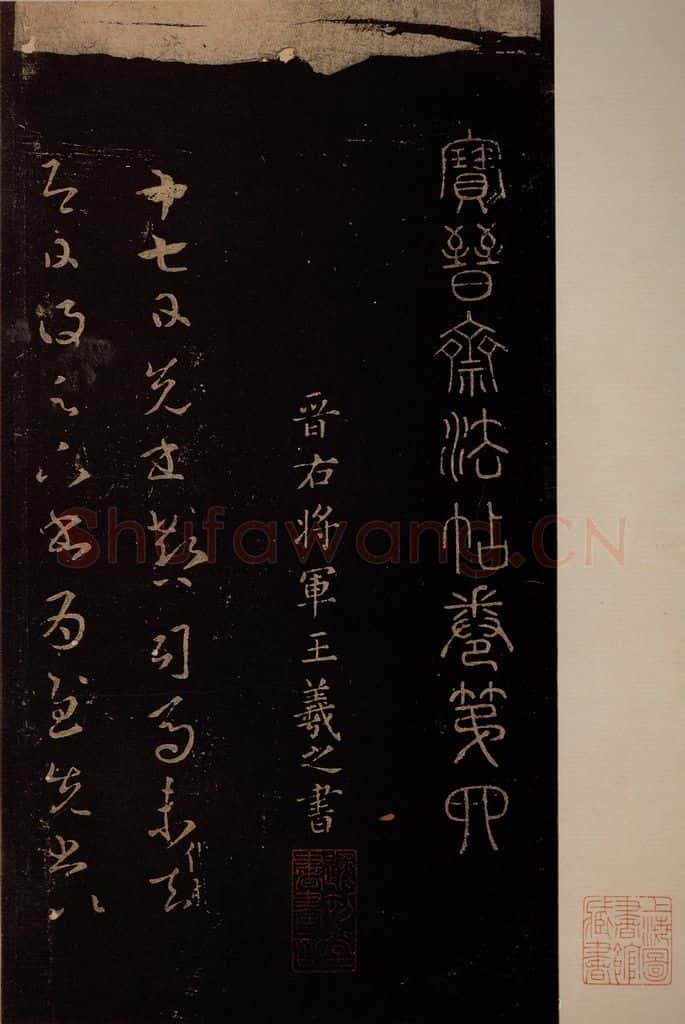 寶晉齋法帖卷第四
晉右將軍王羲之書
十七日先書郗司馬未去
即日得足下書為慰先書以
上海圖書館藏書
Shufawang.CN